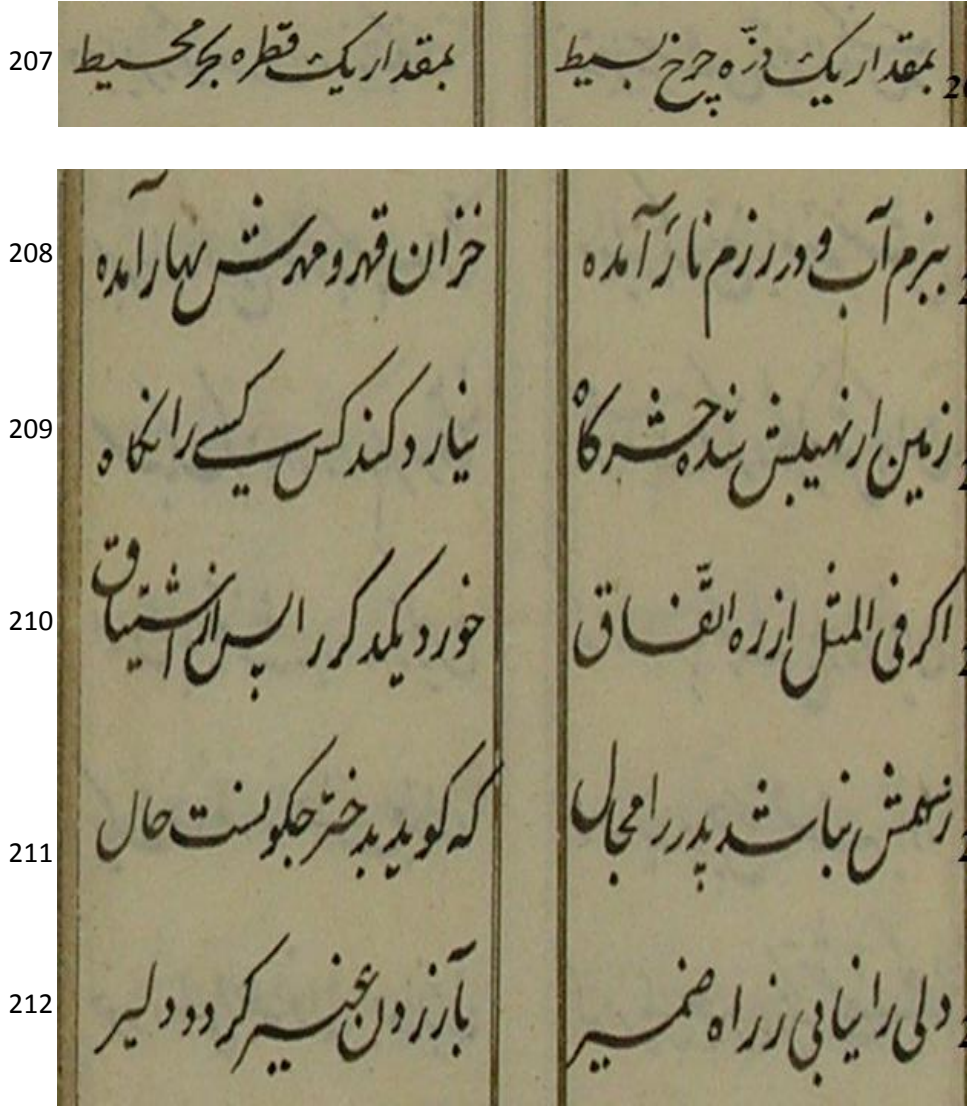 207 بمقدار یک ذرّه چرخ بسیط بمقدار یک قطره بحر محیط
208 ببزم آب و در رزم نار آمده خزان قهر و مهرش بهار آمده
209 زمین از نهیبش شده حشرکاه نیارد کند کس کسے را نکاه
210 اکر فی المثل از ره اتّفاق خورد یکدکر را پس از اشتیاق
211 ز سهمش نباشد پدر را مجال که کوید بدختر چکونست حال
212 دلی را نیابی ز راه ضمیر بآزردن غیر کردد دلیر